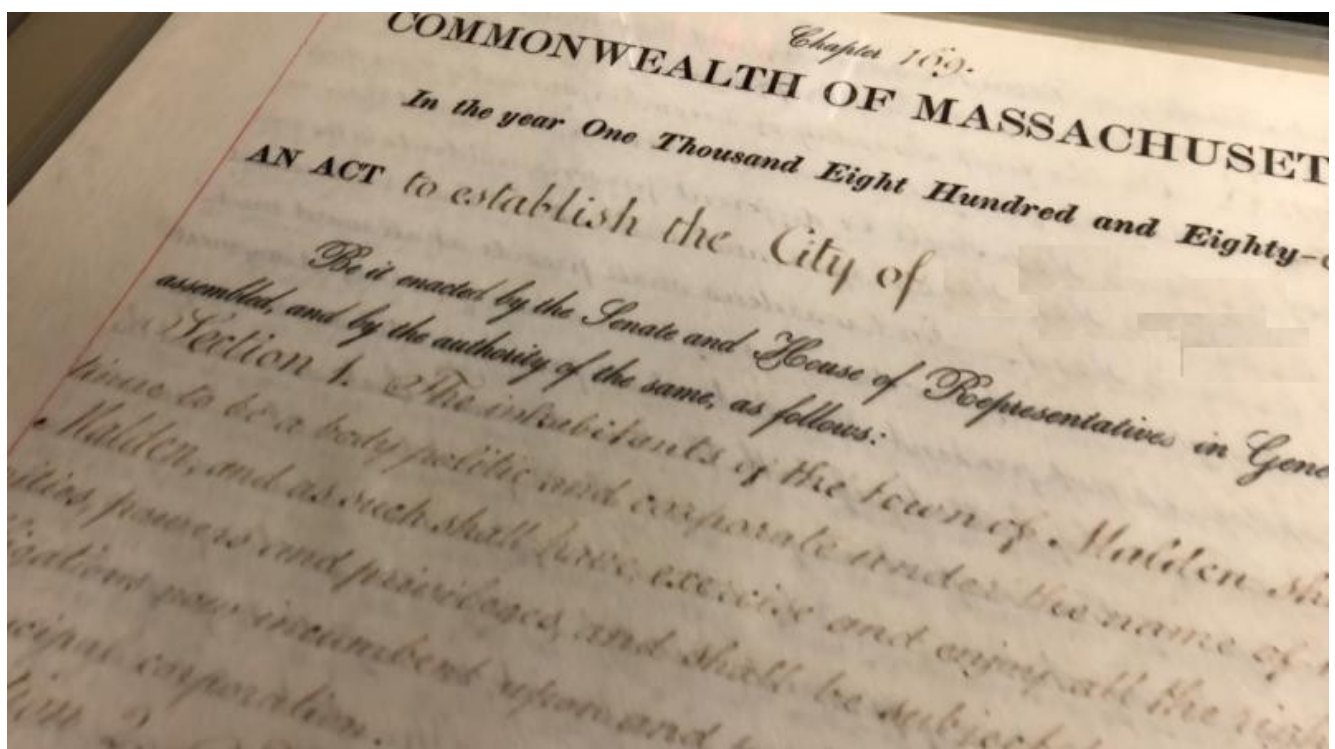 Chapter 169.
COMMONWEALTH OF MASSACHUSET
In the year One Thousand Eight Hundred and Eighty-
AN ACT to establish the City of
Be it enacted by the Senate and House of Representatives in Gene
assembled, and by the authority of the same, as follows:
Section 1. The inhabitants of the town of Malden sha
tinue to be a body politic and corporate under the name of
Malden, and as such shall have, exercise and enjoy all the righ
ities, powers and privileges, and shall be subject
igations now incumbent upon and
cipal corporation.